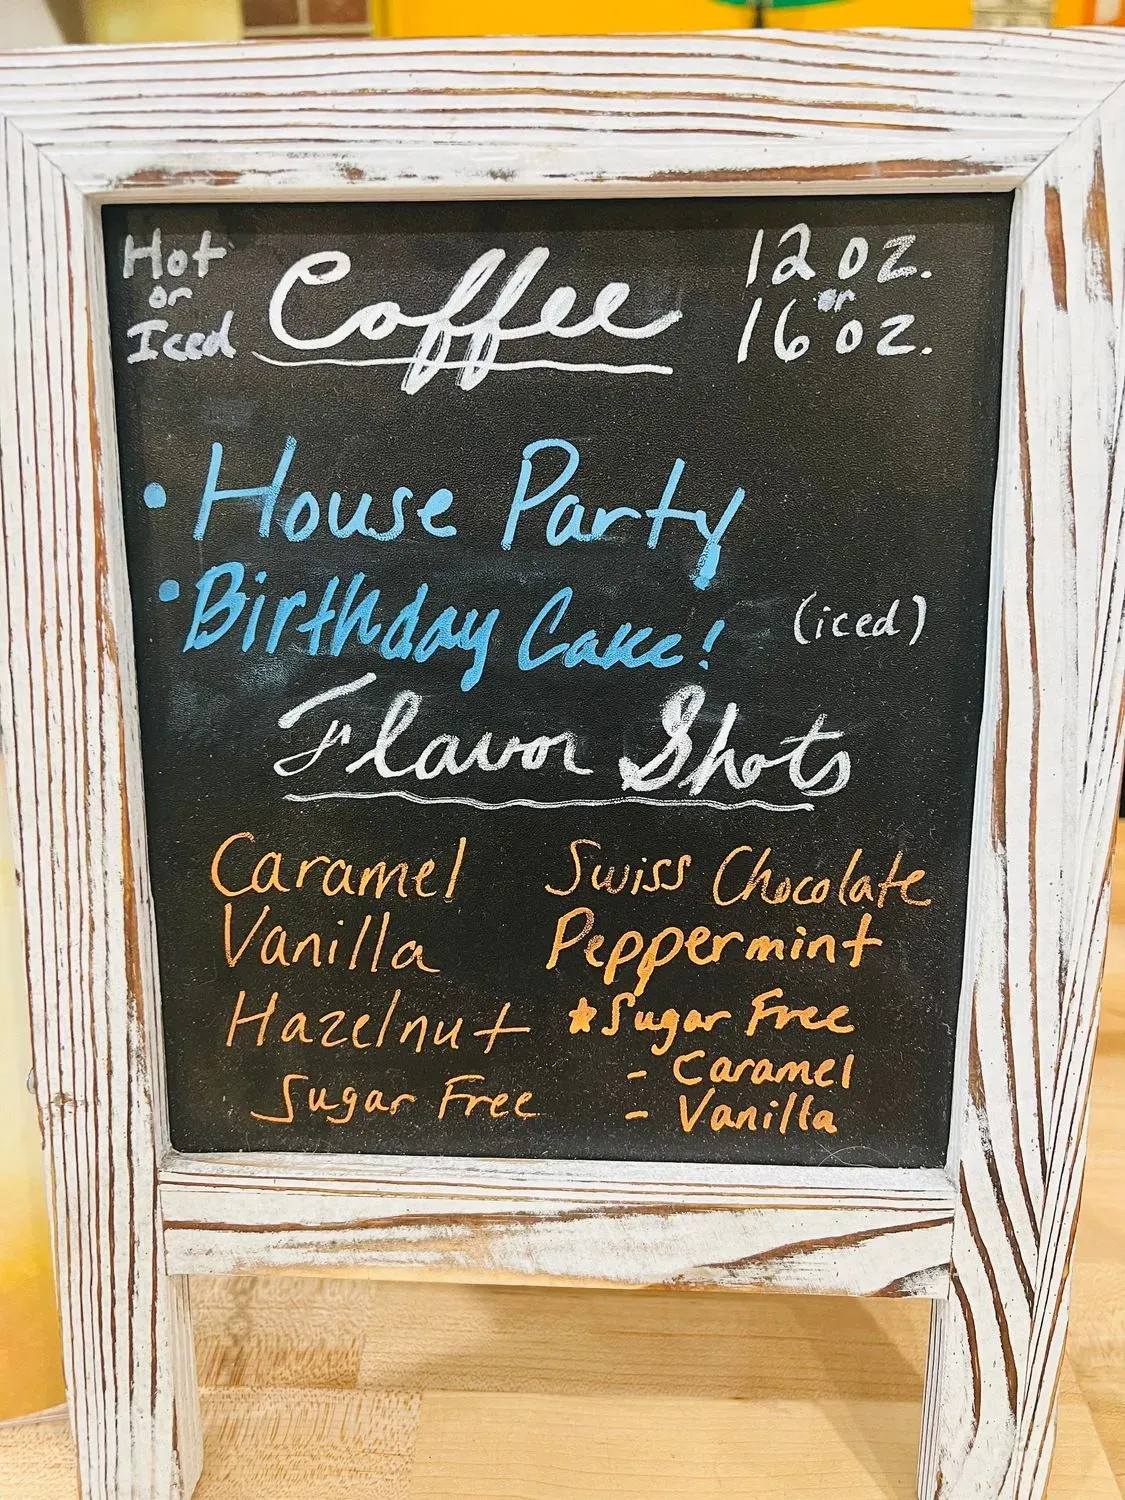 Hot or Iced
Coffee
12 oz. or 16 oz.
• House Party
• Birthday Cake! (iced)
Flavor Shots
Caramel
Vanilla
Hazelnut
Sugar Free
Swiss Chocolate
Peppermint
★Sugar Free
- Caramel
- Vanilla